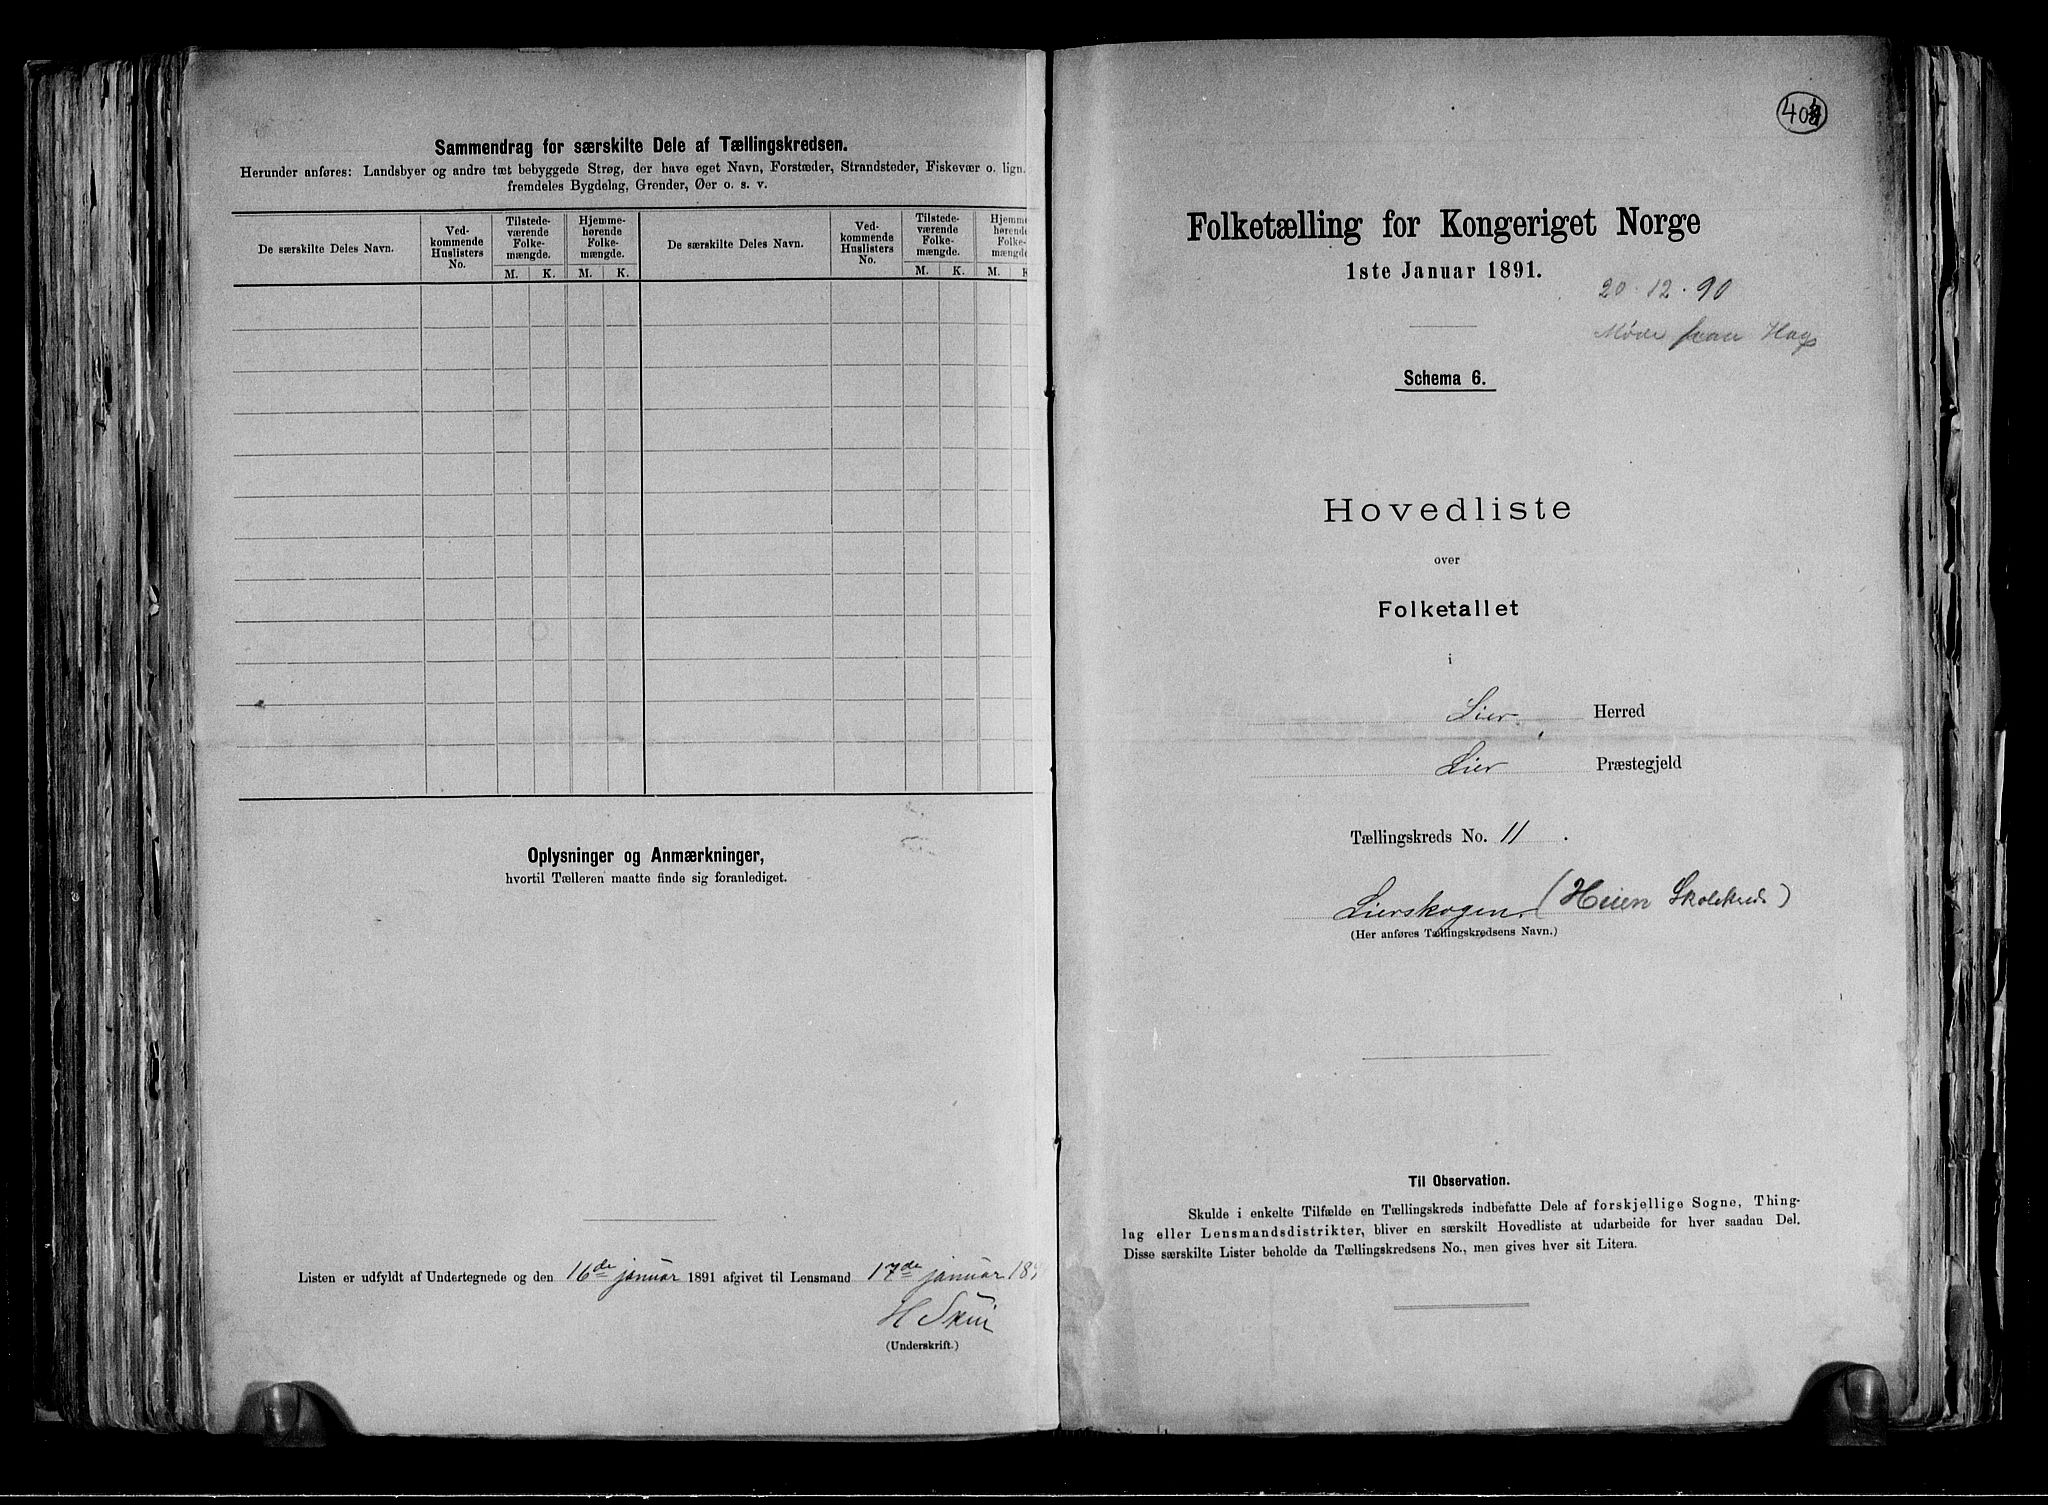 Sammendrag for særskilte Dele af Tællingskredsen.
Herunder anføres: Landsbyer og andre tæt bebyggede Strøg, der have eget Navn, Forstæder, Strandsteder, Fiskevær o. lign.
fremdeles Bygdelag, Grender, Øer o. s. v.
De særskilte Deles Navn.
Ved-
kommende
Huslisters
No.
Tilstede-
værende
Folke-
mængde.
M. K.
Hjemme-
hørende
Folke-
mængde.
M. K.
De særskilte Deles Navn.
Ved-
kommende
Huslisters
No.
Tilstede-
værende
Folke-
mængde.
M. K.
Hjemme-
hørende
Folke-
mængde
M. K
Oplysninger og Anmærkninger,
hvortil Tælleren maatte finde sig foranlediget.
Listen er udfyldt af Undertegnede og den 16de januar 1891 afgivet til Lensmand 17de januar 189
H Skui
(Underskrift.)
Folketælling for Kongeriget Norge
1ste Januar 1891.
20.12.90
Møde
Schema 6.
Hovedliste
over
Folketallet
i
Lier Herred
Lier Præstegjeld
Tællingskreds No. 11.
Lierskogen. (Heien Skolekreds)
(Her anføres Tællingskredsens Navn.)
Til Observation.
Skulde i enkelte Tilfælde en Tællingskreds indbefatte Dele af forskjellige Sogne, Thing-
lag eller Lensmandsdistrikter, bliver en særskilt Hovedliste at udarbeide for hver saadan Del.
Disse særskilte Lister beholde da Tællingskredsens No., men gives hver sit Litera.